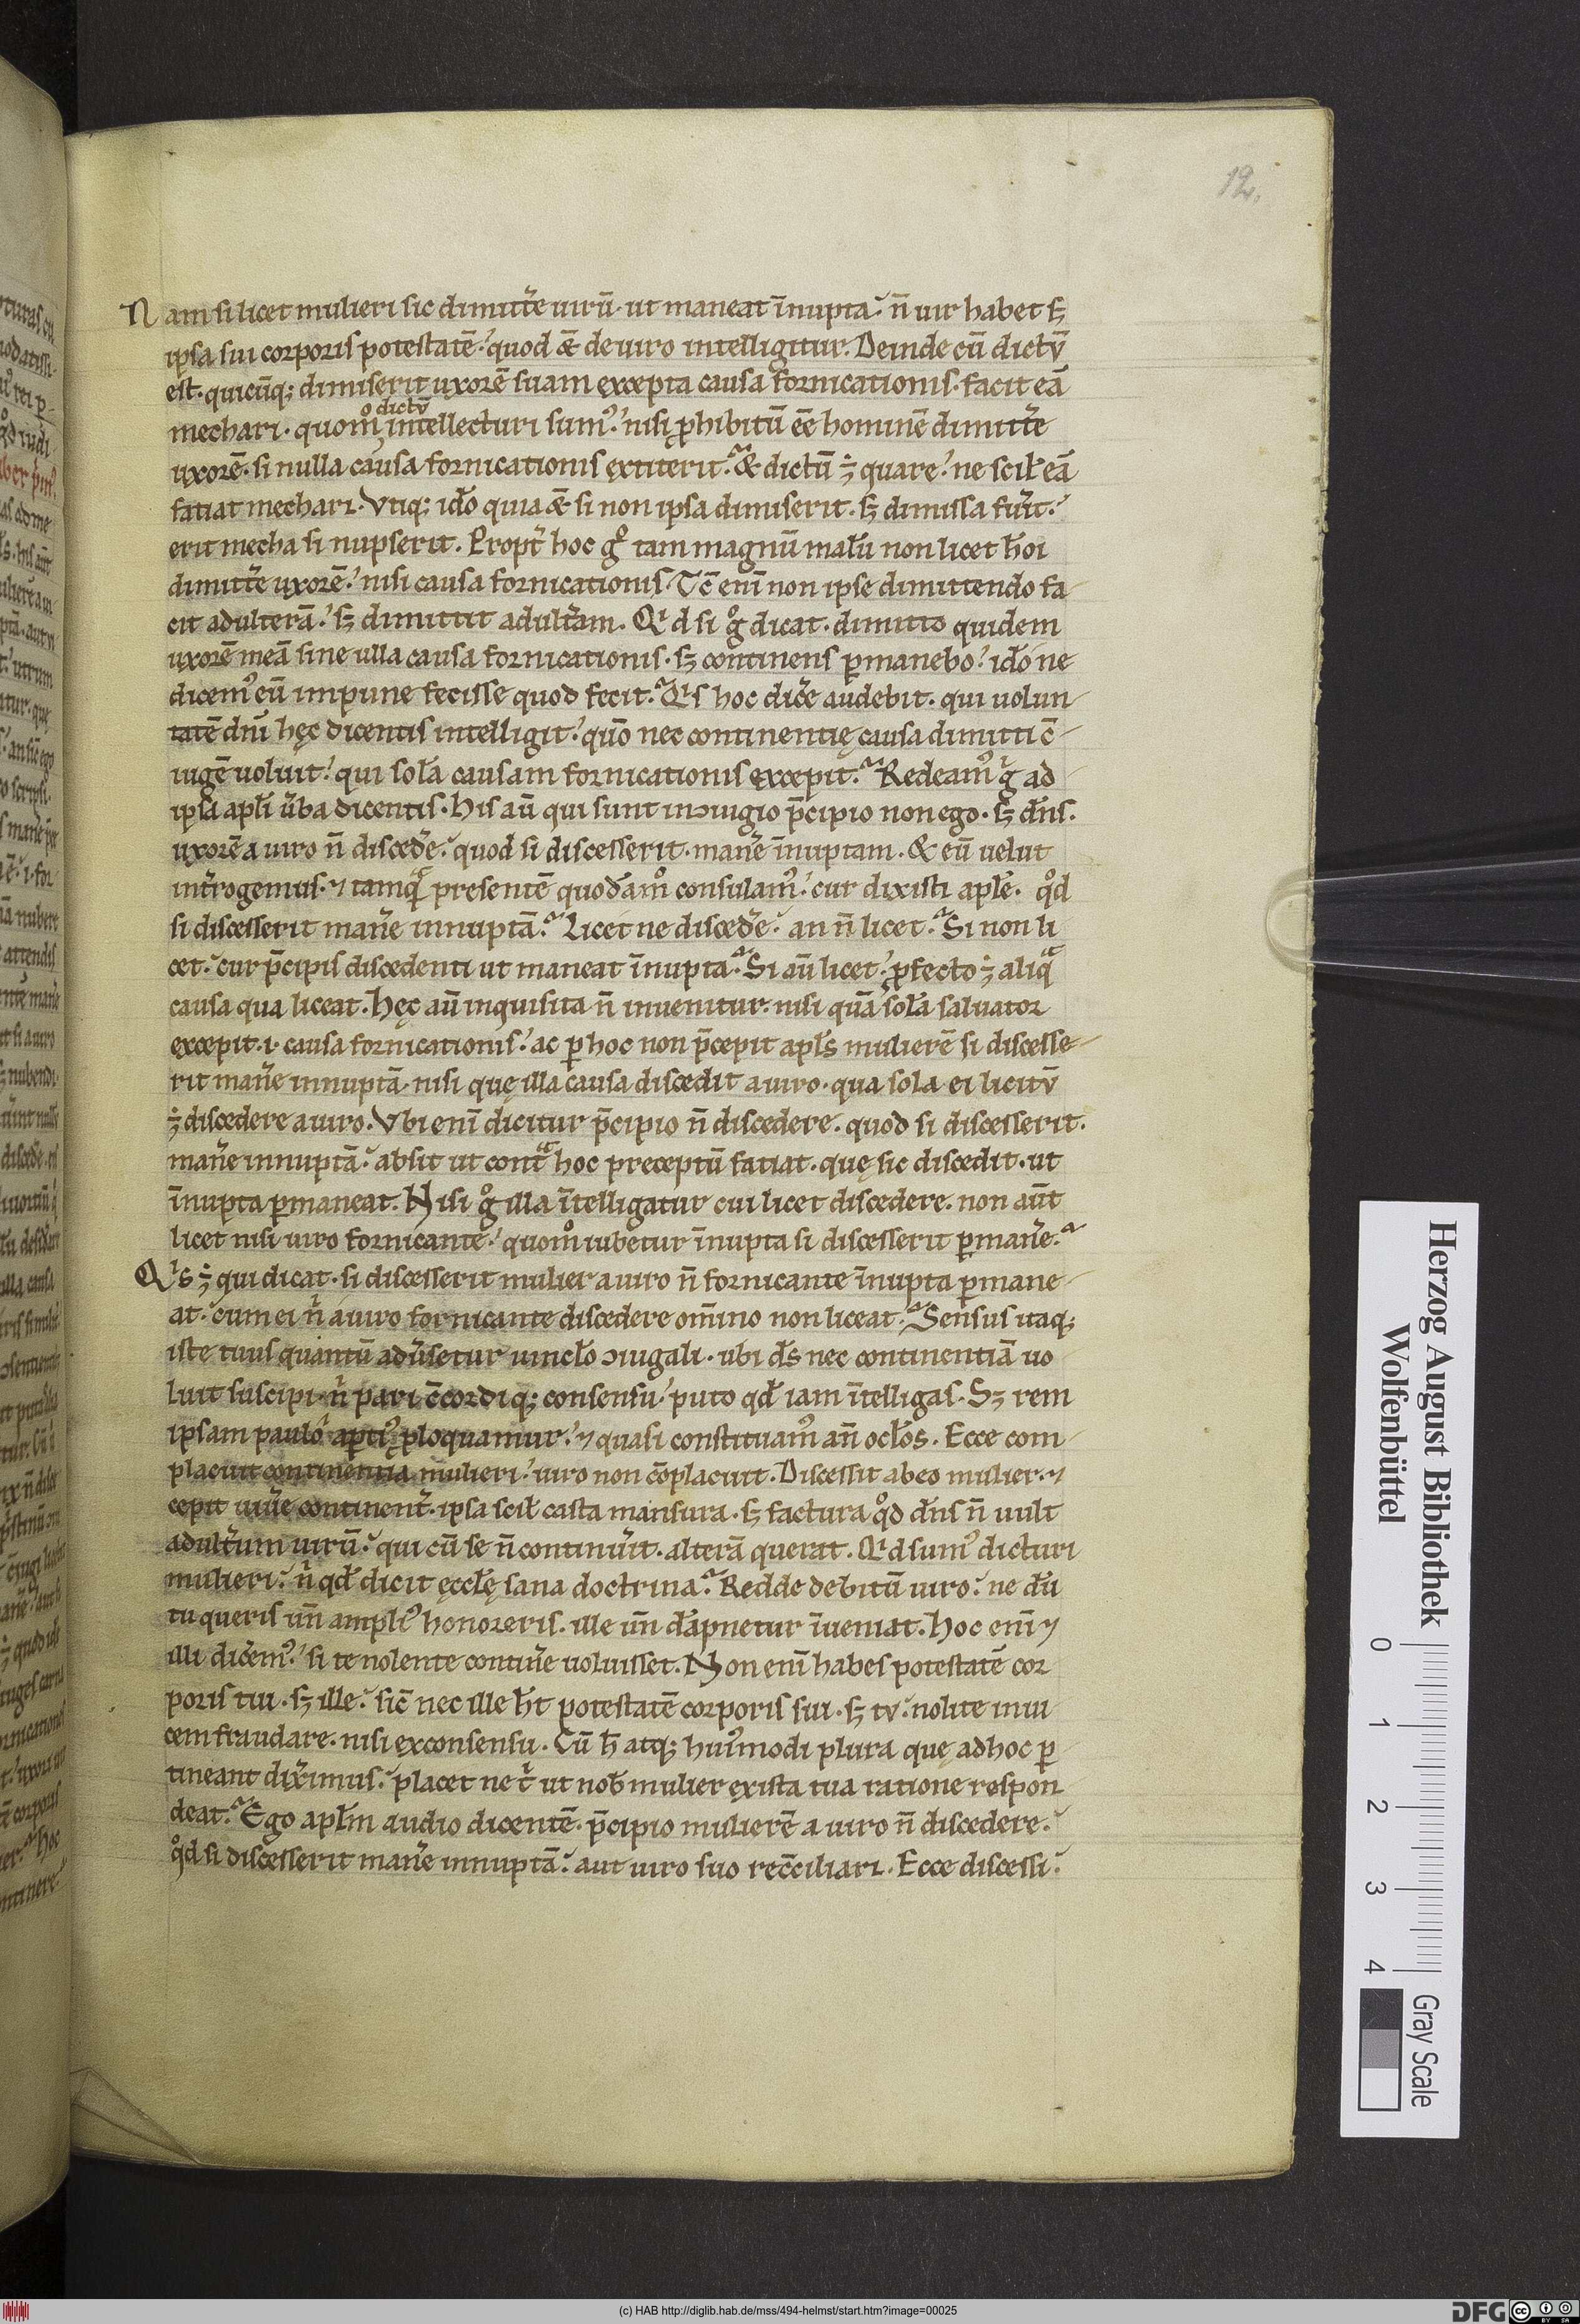 12.
Nam si licet mulieri sic dimitt̄e uirū· ut maneat īnupta· n̄ uir habet sꝫ
ipsa sui corporis potestatē· quod & de uiro intelligitur. Deinde cū dictū
est· quicūq; dimiserit uxorē suam excepta causa fornicationis· facit eā
odictū
mechari· quom intellecturi sumꝰ· nisi ꝓhibitū eē hominē dimitt̄e
uxorē· si nulla causa fornicationis extiterit· & dictū ÷ quare· ne scił eā
fatiat mechari. Vtiq; ido quia & si non ipsa dimiserit· sꝫ dimissa fuīt·
erit mecha si nupserit. Propt̄ hoc gͦ tam magnū malū non licet hōi
dimitt̄e uxorē· nisi causa fornicationis· Tc̄ enī non ipse dimittendo fa
cit adulterā· sꝫ dimittit adult̄am. Qͥd si gͦ dicat· dimitto quidem
uxorē meā sine ulla causa fornicationis· sꝫ continens ꝑmanebo· ido ne
dicemꝰ eū impune fecisse quod fecit. Qͥs hoc dic̄e audebit· qui uolun
tatē dn̄i hęc dicentis intelligit· quō nec continentię causa dimitti c̄
iugē uoluit· qui solā causam fornicationis excepit. Redeamꝰ gͥ ad
ipsa apłi ūba dicentis· His aū qui sunt in ↄiugio p̄cipio non ego· sꝫ dn̄s·
uxorē a uiro n̄ disced̄e· quod si discesserit· man̄e īnuptam· & eū uelut
int̄rogemus· ⁊ tamqͣ presentē quodāmͦ consulamꝰ· cur dixisti apłe· qͦd
si discesserit man̄e innuptā· Licet ne disced̄e· an n̄ licet· Si non li
cet· cur p̄cipis discedenti ut maneat īnupta· Si aū licet· ꝓfecto ÷ aliqͣ
causa qua liceat· Hęc aū inquisita n̄ inuenitur· nisi quā solā saluator
excepit· i· causa fornicationis· ac ꝑ hoc non p̄cepit apłs mulierē si discesse
rit man̄e innuptā· nisi quę illa causa discedit a uiro· qua sola ei licitū
÷ discedere a uiro. Vbi enī dicitur p̄cipio n̄ discedere· quod si discesserit·
man̄e innuptā· absit ut contͣ hoc preceptū fatiat· quę sic discedit· ut
īnupta ꝑmaneat. Nisi gͦ illa ītelligatur cui licet discedere· non aūt
licet nisi uiro fornicante· quomͦ iubetur īnupta si discesserit ꝑman̄e·
Qͥs ÷ qui dicat· si discesserit mulier a uiro n̄ fornicante īnupta ꝑmane
at· cum ei nͥ a uiro fornicante discedere om̄ino non liceat· Sensus itaq;
iste tuus quantū adūsetur uincło ↄiugali· ubi dn̄s nec continentiā uo
luit suscipi· nͥ pari c̄cordiq; consensu· puto qd̄ iam ītelligas· Sꝫ rem
ipsam paulo aptiꝰ ꝓloquamur· ⁊ quasi constituamꝰ an̄ ocłos. Ecce com
placuit continentia mulieri· uiro non cōplacuit. Discessit ab eo mulier· ⁊
cepit uiūe continent̄· ipsa scił casta mansura· sꝫ factura qͦd dn̄s n̄ uult
adult̄um uirū· qui cū se n̄ continūit· alterā querat· Qͥd sumꝰ dicturi
mulieri· nͥ qd̄ dicit ęccłę sana doctrina· Redde debitū uiro· ne dū
tu queris un̄ ampliꝰ honoreris· ille un̄ dāpnetur īueniat· Hoc enī ⁊
illi dic̄emꝰ· si te nolente contin̄e uoluisset. Non enī habes potestatē cor
poris tui· sꝫ ille· sic̄ nec ille ht̄ potestatē corporis sui· sꝫ tu· nolite inui
cem fraudare· nisi ex consensu· Cū h̄ atq; huiꝰmodi plura quę ad hoc ꝑ
tineant dix̄imus· placet ne tͥ ut nob̄ mulier ex ista tua ratione respon
deat· Ego apłm audio dicentē· p̄cipio mulierē a uiro n̄ discedere·
qͦd si discesserit man̄e innuptā· aut uiro suo rec̄ciliari· Ecce discessi·
Herzog August Bibliothek
Wolfenbüttel
0 1 2 3 4
Gray Scale
(c) HAB http://diglib.hab.de/mss/494-helmst/start.htm?image=00025
DFG
cc BY SA